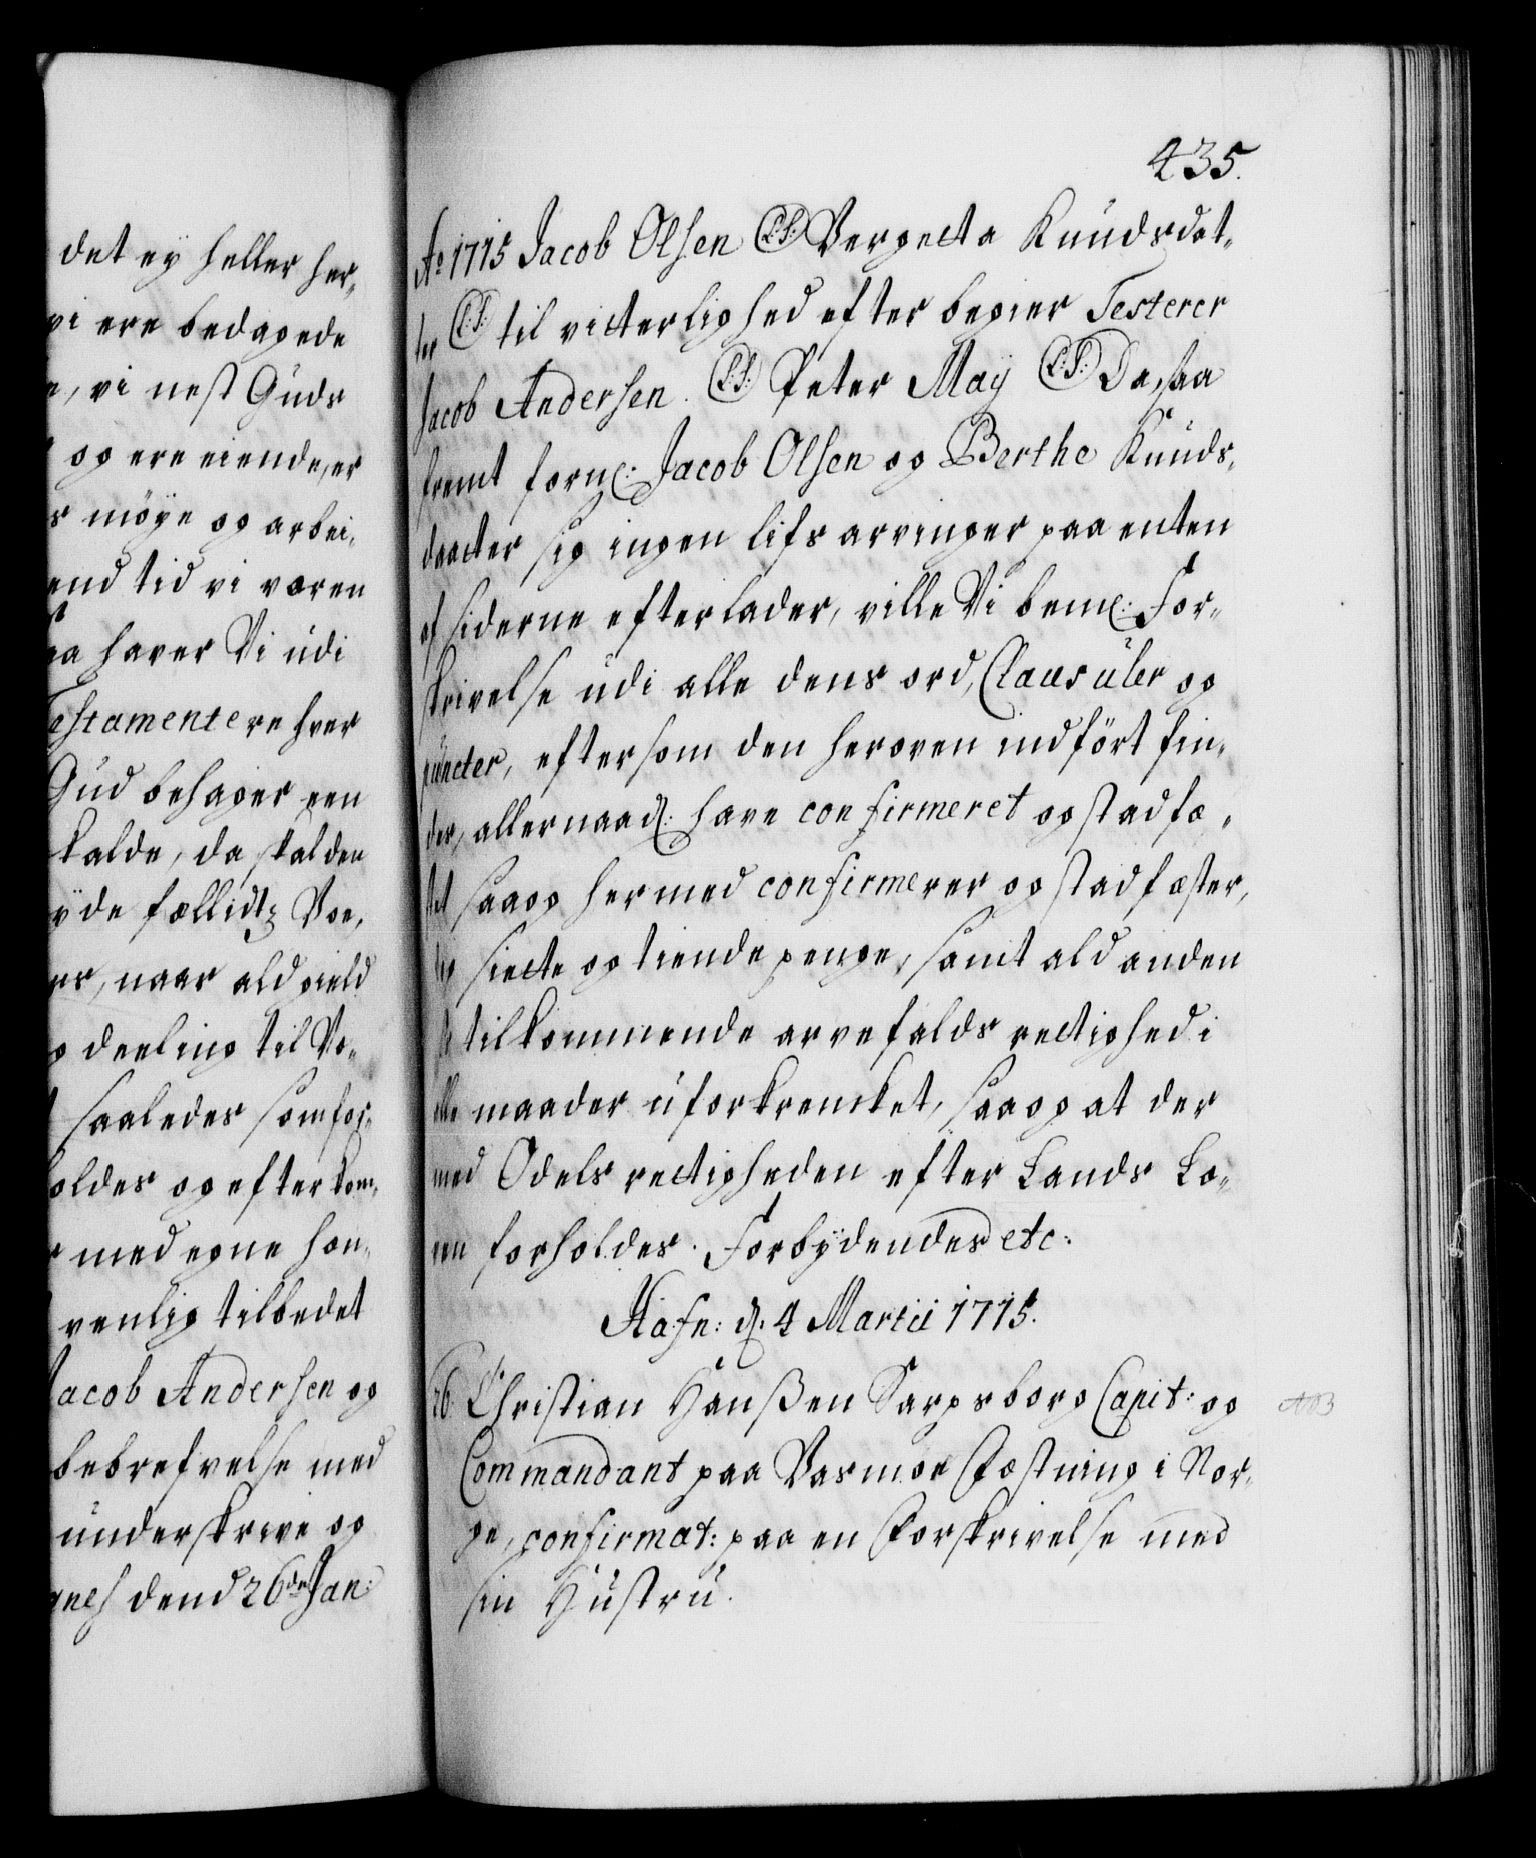 det ey heller her,
vi ere bedagede
vi nest Guds
og ere eiende, er
möye og arbei,
end tid vi været
haver Vi udi
Testamentere hver
Gud behager een
kalde, da skal den
fællidtz Boe,
naar ald gield
deeling til Vo,
saaledes som for,
holdes og efterkom,
med egne hæn,
venlig tilbedet
Jacob Andersen og
bebrefvelse med
underskrive og
dend 26de Jan:
435.
Ao 1715 Jacob Olsen (L.S.) Bergetta Knudsdat,
ter (L.S.) til vitterlighed efter begier Testerer
Jacob Andersen. (L.S.) Peter May (L.S.) Da, saa
fremt forne: Jacob Olsen og Berthe Knuds,
daatter sig ingen lifs arvinger paa enten
af siderne efterlader, ville Vi beme: For,
skrivelse udi alle dens ord, Clausuler og
puncter, eftersom den heroven indført fin,
des, allernaad: have confirmeret og stadfæ,
stet saa og hermed confirmerer og stadfæster,
siette og tiende penge, samt ald anden
tilkommende arvefalds rettighed i
alle maader uforkrencket, saa og at der
med Odels rettigheden efter Lands Lo,
ven forholdes. Forbydendes etc:
Hafn: d. 4 Martii 1715.
26. Christian Hanßen Sarpsborg Capit: og
Commandant paa Basmoe Fæstning i Nor,
ge, confirmat: paa en Forskrivelse med
sin Hustru.